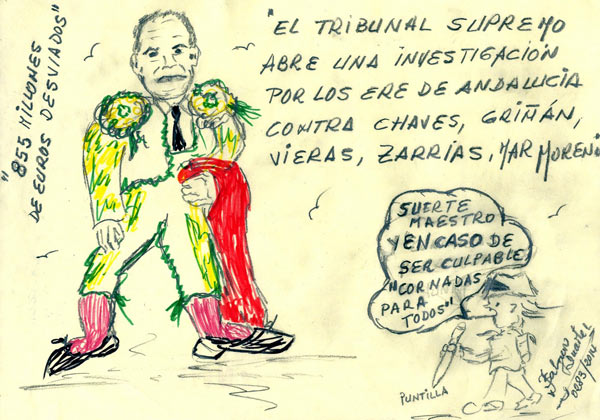 "855 MILLONES
DE EUROS DESVIADOS"
"EL TRIBUNAL SUPREMO
ABRE UNA INVESTIGACION
POR LOS ERE DE ANDALUCIA
CONTRA CHAVES, GRIÑÁN,
VIERAS, ZARRIAS, MAR MORENO
SUERTE
MAESTRO
Y EN CASO DE
SER CULPABLE
"CORNADAS
PARA
TODOS"
PUNTILLA